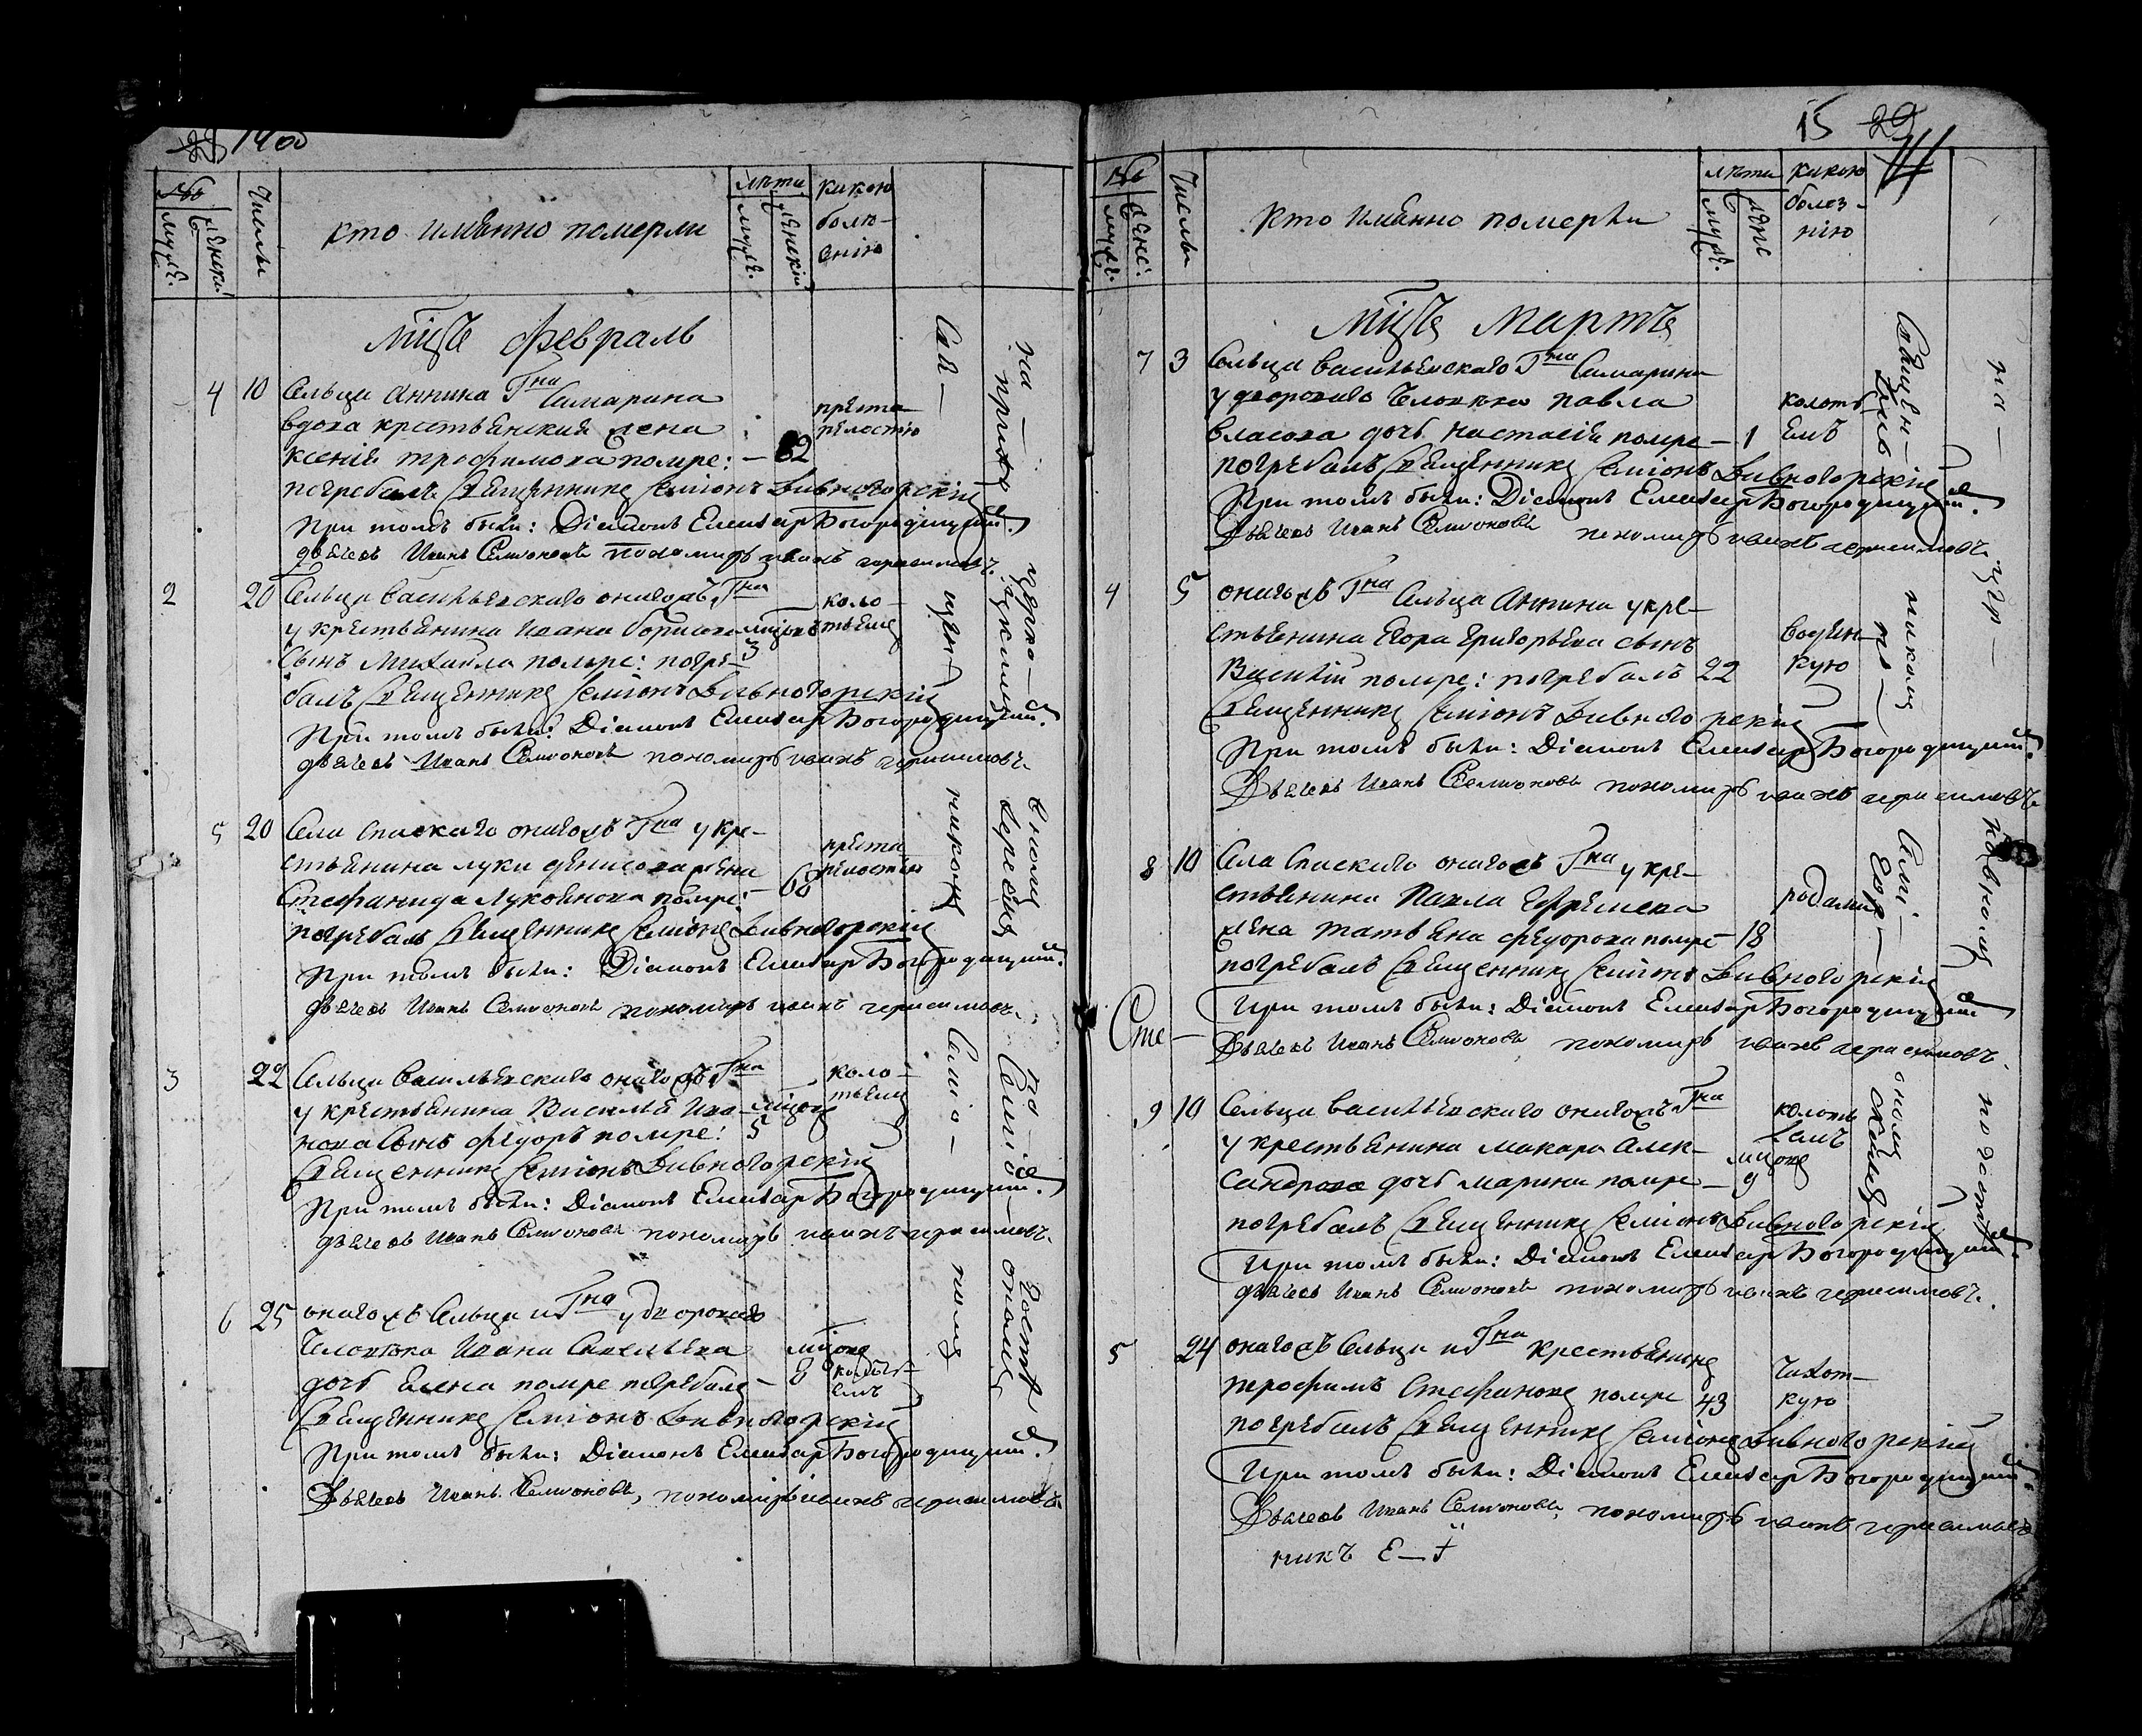 №
муж:
женск:
Числы
кто имянно померли
лѣта
муж:
женскія
какою
болѣ-
знію
Мцъ февраль
4 10 Сельца Аннина Гна Самарина
вдова крестьянская жена
ксенія трофимова помре: — 62
преста-
релостію
погребалъ Священникъ Семіонъ Дивногорскій
При томъ были: Діаконъ Елеазаръ Богородицкій.
дьячекъ Иванъ Семионовъ пономарь иванъ герасимовъ.
2 20 Сельца васильевскаго онагожъ Гна
у крестьянина Ивана борисова мцовъ
коло-
тьемъ
Сынъ Михайла помре: погре- 3
балъ Священникъ Семіонъ Дивногорскій
При томъ были: Діаконъ Елеазаръ Богородицкій.
дьячекъ Иванъ Семионовъ пономарь иванъ герасимовъ.
5 20 Села Спаскаго онагожъ Гна у кре-
стьянина луки денисова жена
Стефанида Лукоянова помре: 68
преста
релостію
погребалъ Священникъ Семіонъ Дивногорскій
При томъ были: Діаконъ Елеазаръ Богородицкій.
дьячекъ Иванъ Семионовъ пономарь иванъ герасимовъ.
3 22 Сельца васильевскаго онагожъ Гна
у крестьянина Василья Ива- мцовъ
коло-
тьемъ
нова Сынъ федоръ помре: 5
Священникъ Семіонъ Дивногорскій
При томъ были: Діаконъ Елеазаръ Богородицкій.
дьячекъ Иванъ Семионовъ пономарь иванъ герасимовъ.
6 25 онагожъ Сельца и Гна у двороваго
Человѣка Ивана Савельева мцовъ
дочь Елена помре погребалъ 8
колоть-
емъ
Священникъ Семіонъ Дивногорскій
При томъ были: Діаконъ Елеазаръ Богородицкій.
Дьячекъ Иванъ Семионовъ, пономарь иванъ герасимовъ.
Свя-
щен
никомъ
Семіо-
номъ
15 29
№
муж:
женс:
Числы
Кто имянно померли
лѣта
муж:
женс
какою
болез-
нію
Мцъ Мартъ
7 3 Сельца васильевскаго Гна Самарина
у двороваго Человѣка павла
власова дочь настасія помре — 1
колоть
емъ
погребалъ Священникъ Семіонъ Дивногорскій
При томъ были: Діаконъ Елеазаръ Богородицкій.
Дьячекъ Иванъ Семионовъ пономарь иванъ герасимовъ.
4 5 онагожъ Гна Сельца Аннина у кре-
стьянина Егора григорьева сынъ
Василій помре: погребалъ 22
водян-
кую
Священникъ Семіонъ Дивногорскій
При томъ были: Діаконъ Елеазаръ Богородицкій.
Дьячекъ Иванъ Семионовъ пономарь иванъ герасимовъ.
8 10 Села Спаскаго онагожъ Гна у кре-
стьянина Павла Ефремева
жена татьяна федорова помре — 18
родами
погребалъ Священникъ Семіонъ Дивногорскій
При томъ были: Діаконъ Елеазаръ Богородицкій
Дьячекъ Иванъ Семионовъ пономарь иванъ герасимовъ.
9 10 Сельца васильевскаго онагожъ Гна
у крестьянина макара Алек-
сандрова дочь марина помре — 9
мцовъ
колоть
емъ
погребалъ Священникъ Семіонъ Дивногорскій
При томъ были: Діаконъ Елеазаръ Богородицкій.
дьячекъ Иванъ Семионовъ пономарь иванъ герасимовъ.
5 24 онагожъ Сельца и Гна крестьянинъ
трофимъ Стефановъ помре 43
Чахот-
кую
погребалъ Священникъ Семіонъ Дивногорскій
При томъ были: Діаконъ Елеазаръ Богородицкій.
Дьячекъ Иванъ Семионовъ, пономарь иванъ герасимовъ
никъ
Священ-
никомъ
Семі-
ономъ